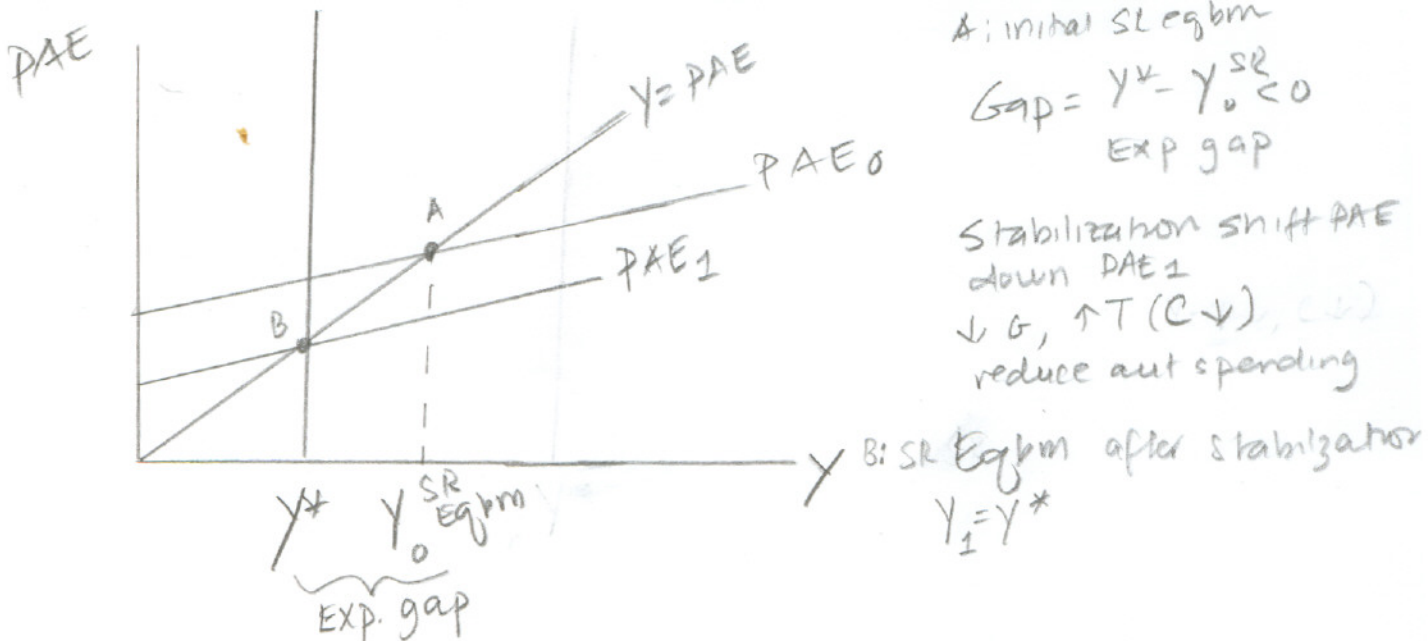 PAE
Y=PAE
PAE0
PAE1
A
B
Y
Y* Y0 SR Eqbm
Exp. gap
A: inital SR eqbm
Gap = Y* - Y0 SR < 0
Exp gap
Stabilization shift PAE
down PAE1
↓ G, ↑ T (C ↓)
reduce aut spending
B: SR Eqbm after stabilization
Y1 = Y*